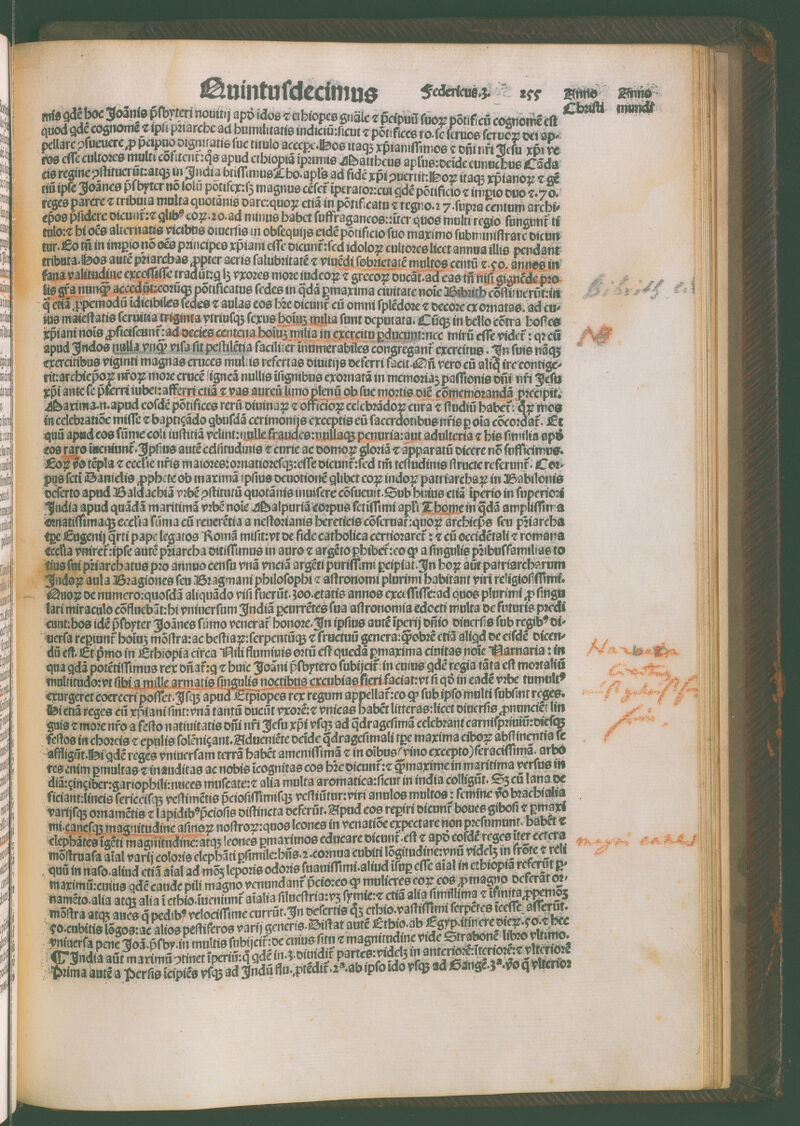 Quintusdecimus Federicus.3. 255 Anno Anno
Christi mundi
mis qdē hoc Joānis p̄sbyteri nouitij apd̓ idos ⁊ ethiopes gn̄ale ⁊ p̄cipuū suoꝝ pōtificū cognomē est
quod qdē cognomē ⁊ ipsi p̄riarche ad humilitatis indiciū: sicut ⁊ pōtifices ro. se seruos seruoꝝ dei ap-
pellare ↄsueuere ꝓ p̄cipuo dignitatis sue titulo accepe. Hos itaqꝫ xp̄ianissimos ⁊ dn̄i nr̄i Jesu xp̄i ve
ros esse cultores multi cōsitent̄: qs apud ethiopiā īprimis Mattheus apl̓us: deīde eunuchus Cāda
cis regine ↄstituerūt: atqꝫ in India btissimus Tho. apl̓s ad fidē xp̄i ↄuertit: Hoꝝ itaqꝫ xp̄ianoꝝ ⁊ gē
tiū ipse Joānes p̄sbyter nō solū pōtifex: sꝫ magnus cēset̄ īperator: cui qdē pōtificio ⁊ impio duo ⁊ .70.
reges parere ⁊ tributa multa quotānis dare: quoꝝ etiā in pōtificatu ⁊ regno .127. supra centum archi-
ep̄os p̄sidere dicunt̄: ⁊ qlibꝫ eoꝝ .20. ad minus habet suffraganeos: inter quos multi regio fungunt̄ ti
tulo: ⁊ hi oēs alternatis vicibus diuersis in obsequijs eidē pōtificio suo maximo subministrare dicun
tur. Eo tn̄ in impio nō oēs principes xp̄iani esse dicunt̄: sed idoloꝝ cultores licet annua illis pendant
tributa. Hos autē p̄riarchas ꝓpter aeris salubritatē ⁊ viuēdi sobrietatē multos centū ⁊ .50. annos in
sana valitudine excessisse tradūt: qlꝫ vxores more iudeoꝝ ⁊ grecoꝝ ducāt. ad eas tn̄ nisi gignēde pro
lis gr̄a nunqꝫ accedūt: eorūqꝫ pōtificatus sedes in qdā ꝑmaxima ciuitate noīe Bibrith cōstituerūt: in
q etiā ꝓpemodū īdicibiles sedes ⁊ aulas eos hr̄e dicunt̄ cū omni splēdore ⁊ decore exornatas. ad cu-
ius maiestatis seruitia triginta vtriusqꝫ sexus hoīuꝫ milia sunt deputata. Cūqꝫ in bello cōtra hostes
xp̄iani noīs ꝓficiscunt̄: ad decies centena hoīuꝫ milia in exercitu ꝓducunt: nec mirū esse videt̄: qꝛ cū
apud Indos nulla vnqꝫ visa sit pestilētia faciliter innumerabiles congregant̄ exercitus. In suis nāqꝫ
exercitibus viginti magnas cruces multis refertas diuitijs deferri facit. Qn̄ vero eū aliqꝫ ire contige-
rit: archiep̄oꝝ nr̄oꝝ more crucē ligneā nullis īsignibus exornatā in memoriaꝫ passionis dn̄i nr̄i Jesu
xp̄i ante se p̄ferri iubet: afferri etiā ⁊ vas aureū limo plenū ob sue mortis diē cōmemorandā p̄cipit.
Maxima .n. apud eosdē pōtifices rerū diuinaꝝ ⁊ officioꝝ celebrādoꝝ cura ⁊ studiū habet̄: qꝝ mos
in celebratiōe misse ⁊ baptiçādo qbusdā cerimonijs exceptis cū sacerdotibus nr̄is ꝑ oīa cōcordat̄. Et
quū apud eos sūme coli iustitiā velint: nulle fraudes: nullaqꝫ penuria: aut adulteria ⁊ his similia apd̓
eos raro inueniunt̄. Ipsius autē celsitudinis ⁊ curie ac domoꝝ gloriā ⁊ apparatū dicere nō sufficimus.
Eoꝝ v̊o tēpla ⁊ ecclesie nr̄is maiores: ornatioresqꝫ: esse dicunt̄: sed tm̄ testudinis structe referunt̄. Cor-
pus scti Danielis ꝓphete ob maximā ipsius deuotionē qlibet eoꝝ indoꝝ patriarchaꝝ in Babilonis
deserto apud Baldachiā vrbē ↄstitutū quotānis inuisere cōsueuit. Sub huius etiā īperio in superiori
India apud quādā maritimā vrbē noīe Malpuriā corpus sctissimi apl̓i Thome in qdā amplissima
ornatissimaqꝫ ecclia sūma cū reuerētia a nestorianis hereticis cōseruat̄: quoꝝ archiep̄s seu p̄riarcha
tp̄e Eugenij qrti pape legatos Romā misit: vt de fide catholica certioraret̄: ⁊ cū occidētali ⁊ romana
ecclia vniret̄: ipse autē p̄riarcha ditissimus in auro ⁊ argēto ꝓhibet̄: eo qꝫ a singulis p̄ribusfamilias to
tius sui p̄riarchatus pro annuo censu vnā vnciā argēti purissimi ꝑcipiat. In hoꝝ aūt patriarcharum
Indoꝝ aula Bragiones seu Bragmani philosophi ⁊ astronomi plurimi habitant viri religiosissimi.
Quoꝝ de numero: quosdā aliquādo visi fuerūt .300. etatis annos excessisse: ad quos plurimi ꝓ singu
lari miraculo cōfluebāt: hi vniuersum Indiā ꝑcurrētes sua astronomia edocti multa de futuris predi
cunt: hos idē p̄sbyter Joānes sūmo venerat̄ honore. In ipsius autē īperij dn̄io diuersis sub regibꝫ di-
uersa repiunt̄ hoīuꝫ mōstra: ac bestiaꝝ: serpentūqꝫ ⁊ fructuū genera: qꝓbrē etiā aliqd de eisdē dicen-
dū est. Et p̄mo in Ethiopia circa Nili fluminis ortū est quedā ꝑmaxima ciuitas noīe Narnaria: in
qua qdā potētissimus rex dn̄at̄: q ⁊ huic Joāni p̄sbytero subijcit̄: in cuius qdē regia tāta est mortaliū
multitudo: vt sibi a mille armatis singulis noctibus excubias fieri faciat: vt si qꝫ in eadē vrbe tumultꝰ
exurgeret coerceri posset. Isqꝫ apud Etpiopes rex regum appellat̄: eo qꝫ sub ipso multi subsint reges.
Hi etiā reges cū xp̄iani sint: vnā tantū ducūt vxorē: ⁊ vnicas habēt litteras: licet diuersis ꝓnunciēt lin
guis ⁊ more nr̄o a festo natiuitatis dn̄i nr̄i Jesu xp̄i vsqꝫ ad qdragesimā celebrant carnispriuiū: diesqꝫ
festos in choreis ⁊ epulis solēniçant. Aduenīete deīde qdragesimali tp̄e maxima ciboꝝ abstinentia se
affligūt. Hi qdē reges vniuersam terrā habēt amenissimā ⁊ in oībus (vino excepto) feracissimā. arbo
res enim ꝑmultas ⁊ inauditas ac nobis īcognitas eos hr̄e dicunt̄: ⁊ qꝫmaxime in maritima versus in
diā: çinçiber: gariophili: nuces muscate: ⁊ alia multa aromatica: sicut in india colligūt. Sꝫ cū lana de
ficiant: lineis sericeisqꝫ vestimētis p̄ciosissimisqꝫ vestiūtur: viri anulos multos: femine v̊o brachialia
varijsqꝫ ornamētis ⁊ lapidibꝰ p̄ciosis distincta deferūt. Apud eos reꝑiri dicunt̄ boues gibosi ⁊ ꝑmaxi
mi. canesqꝫ magnitudine asinoꝝ nostroꝝ: quos leones in venatiōe expectare non presumunt. habēt ⁊
elephātes īgēti magnitudine: atqꝫ leones ꝑmaximos educare dicunt̄. est ⁊ apd̓ eosdē reges īter cetera
mōstruosa aīal varij coloris elephāti ꝑsimile: hn̄s .2. cornua cubiti lōgitudine: vnū videlꝫ in frōte ⁊ reli
quū in naso. aliud etiā aīal ad mōꝫ leporis odoris suauissimi. aliud īsup esse aīal in ethiopiā referūt ꝑ-
maximū: cuius qdē caude pili magno venundant̄ p̄cio: eo qꝫ mulieres eoꝝ eos ꝓ magno deferāt or-
namēto. alia atqꝫ alia ī ethio. īueniunt̄ aīalia siluestria: vꝫ symie: ⁊ etiā alia simillima ⁊ īfinita ꝓpemōꝫ
mōstra atqꝫ aues q pedibꝰ velocissime currūt. In desertis qꝫ ethio. vastissimi serpētes īcesse asserūt.
50. cubitis lōgos: ac alios pestiferos varij generis. Distat autē Ethio. ab Egyp. itinere dieꝝ .50. ⁊ hec
vniuersa pene Joā. p̄sby. in multis subijcit̄: de cuius situ ⁊ magnitudine vide Strabonē libro vltimo.
¶ India aūt maximū ↄtinet īperiū: q qdē in .3. diuidit̄ partes: videlꝫ in anteriorē: īteriorē: ⁊ vlteriorē
Prima autē a Persis īcipiēs vsqꝫ ad Indū flu. ꝓtēdit̄. 2ª. ab ipso īdo vsqꝫ ad Gangē. 3ª. v̊o q vlterior
Bibrith
NB
magni canes